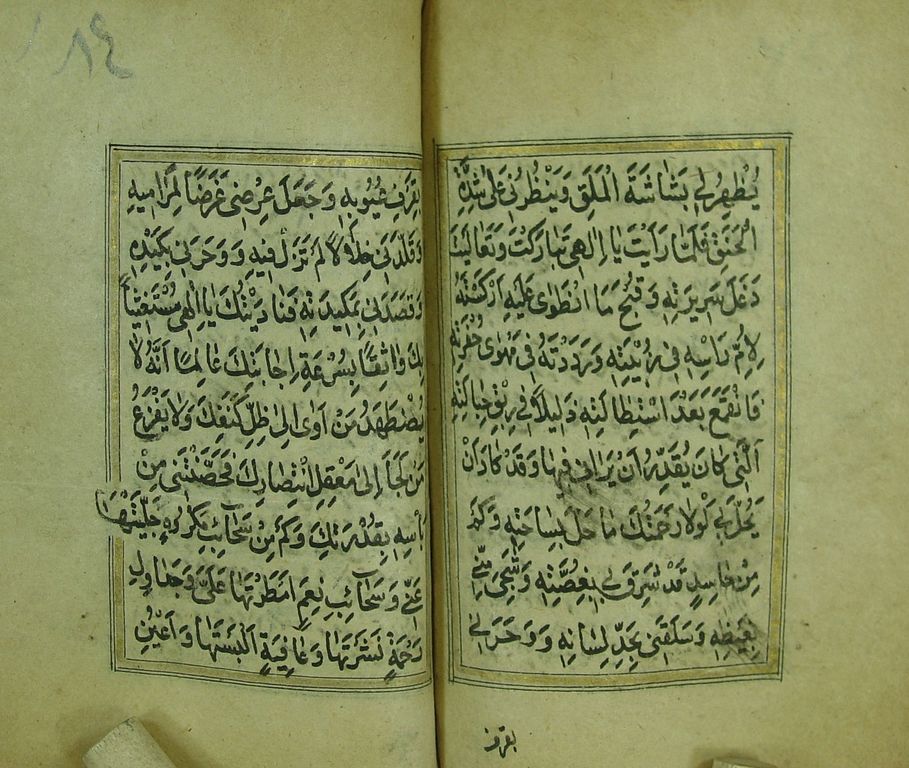 يُظْهِرُ لِي بَشَاشَةَ الْمَلَقِ وَيَنْظُرُنِي عَلَى شِدَّةِ
الْحَنَقِ فَلَمَّا رَأَيْتَ يَا إِلٰهِي تَبَارَكْتَ وَتَعَالَيْتَ
دَغَلَ سَرِيرَتِهِ وَقُبْحَ مَا انْطَوَى عَلَيْهِ أَرْكَسْتَهُ
لِأُمِّ رَأْسِهِ فِي زُبْيَتِهِ وَرَدَدْتَهُ فِي مَهْوَى حُفْرَتِهِ
فَانْقَمَعَ بَعْدَ اسْتِطَالَتِهِ ذَلِيلًا فِي رِبَقِ حِبَالَتِهِ
الَّتِي كَانَ يُقَدِّرُ أَنْ يَرَانِي فِيهَا وَقَدْ كَادَ أَنْ
يَحُلَّ بِي لَوْلَا رَحْمَتُكَ مَا حَلَّ بِسَاحَتِهِ وَكَمْ
مِنْ حَاسِدٍ قَدْ شَرِقَ بِي بِغُصَّتِهِ وَشَجِيَ مِنِّي
بِغَيْظِهِ وَسَلَقَنِي بِحَدِّ لِسَانِهِ وَوَحَرَنِي
بقرف
بِقَرْفِ عُيُوبِهِ وَجَعَلَ عِرْضِي غَرَضًا لِمَرَامِيهِ
وَقَلَّدَنِي خِلَالًا لَمْ تَزَلْ فِيهِ وَوَحَرَنِي بِكَيْدِهِ
وَقَصَدَنِي بِمَكِيدَتِهِ فَنَادَيْتُكَ يَا إِلٰهِي مُسْتَغِيثًا
بِكَ وَاثِقًا بِسُرْعَةِ إِجَابَتِكَ عَالِمًا أَنَّهُ لَا
يُضْطَهَدُ مَنْ أَوَى إِلَى ظِلِّ كَنَفِكَ وَلَا يَفْزَعُ
مَنْ لَجَأَ إِلَى مَعْقِلِ انْتِصَارِكَ فَحَصَّنْتَنِي مِنْ
بَأْسِهِ بِقُدْرَتِكَ وَكَمْ مِنْ سَحَائِبِ مَكْرُوهٍ جَلَّيْتَهَا
عَنِّي وَسَحَائِبِ نِعَمٍ أَمْطَرْتَهَا عَلَيَّ وَجَدَاوِلِ
رَحْمَةٍ نَشَرْتَهَا وَعَافِيَةٍ أَلْبَسْتَهَا وَأَعْيُنِ